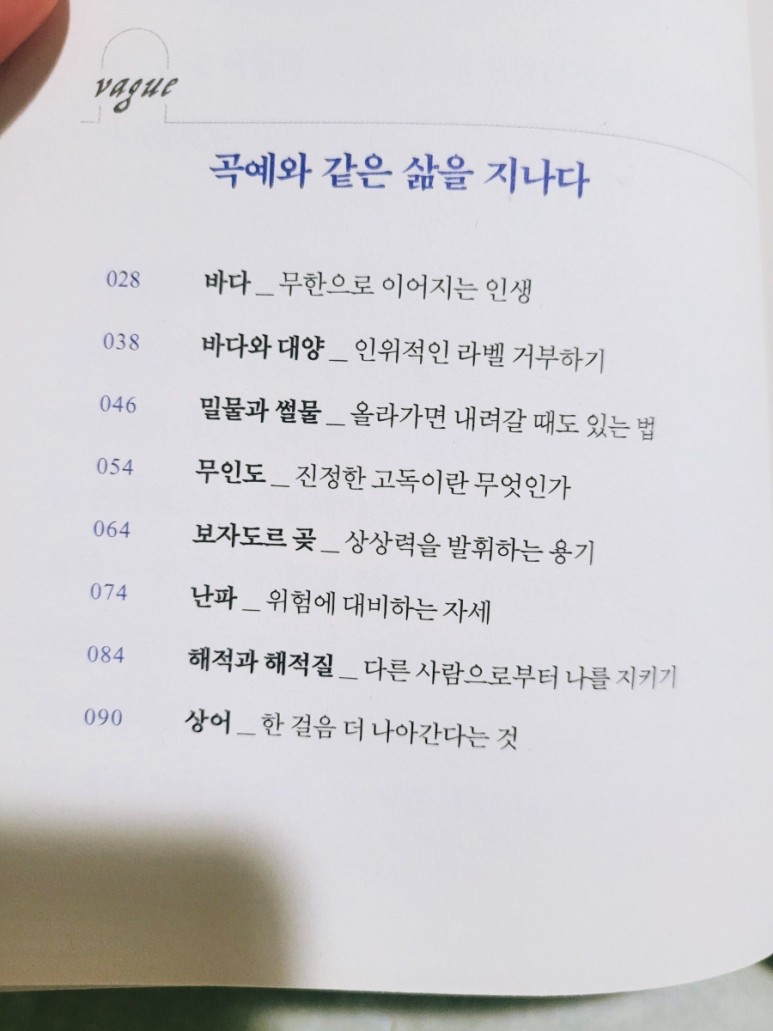 vague
곡예와 같은 삶을 지나다
028 바다 _ 무한으로 이어지는 인생
038 바다와 대양 _ 인위적인 라벨 거부하기
046 밀물과 썰물 _ 올라가면 내려갈 때도 있는 법
054 무인도 _ 진정한 고독이란 무엇인가
064 보자도르 곶 _ 상상력을 발휘하는 용기
074 난파 _ 위험에 대비하는 자세
084 해적과 해적질 _ 다른 사람으로부터 나를 지키기
090 상어 _ 한 걸음 더 나아간다는 것